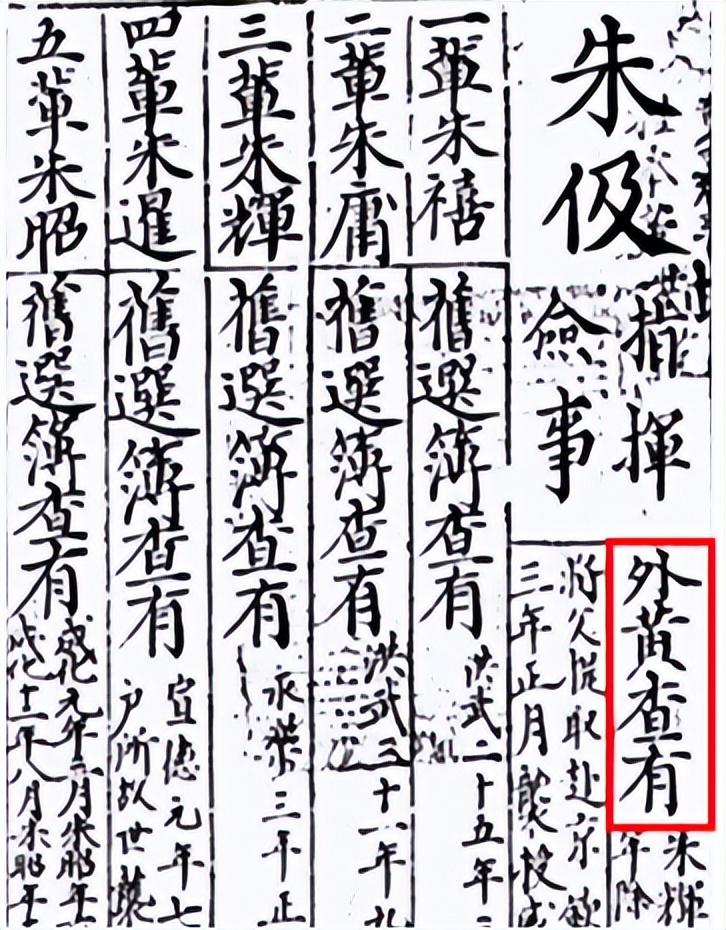 朱伋
指揮
僉事
外黃查有
朱
年除
將父
取赴京欽
三年正月襲授
一輩朱禧
舊選簿查有
洪武二十五年二
二輩朱庸
舊選簿查有
洪武三十一年九
三輩朱輝
舊選簿查有
永樂三年正
四輩朱暹
舊選簿查有
宣德元年七
戶所故世襲
五輩朱昭
舊選簿查有
成化元年二月朱昭年
成化十一年八月朱昭年